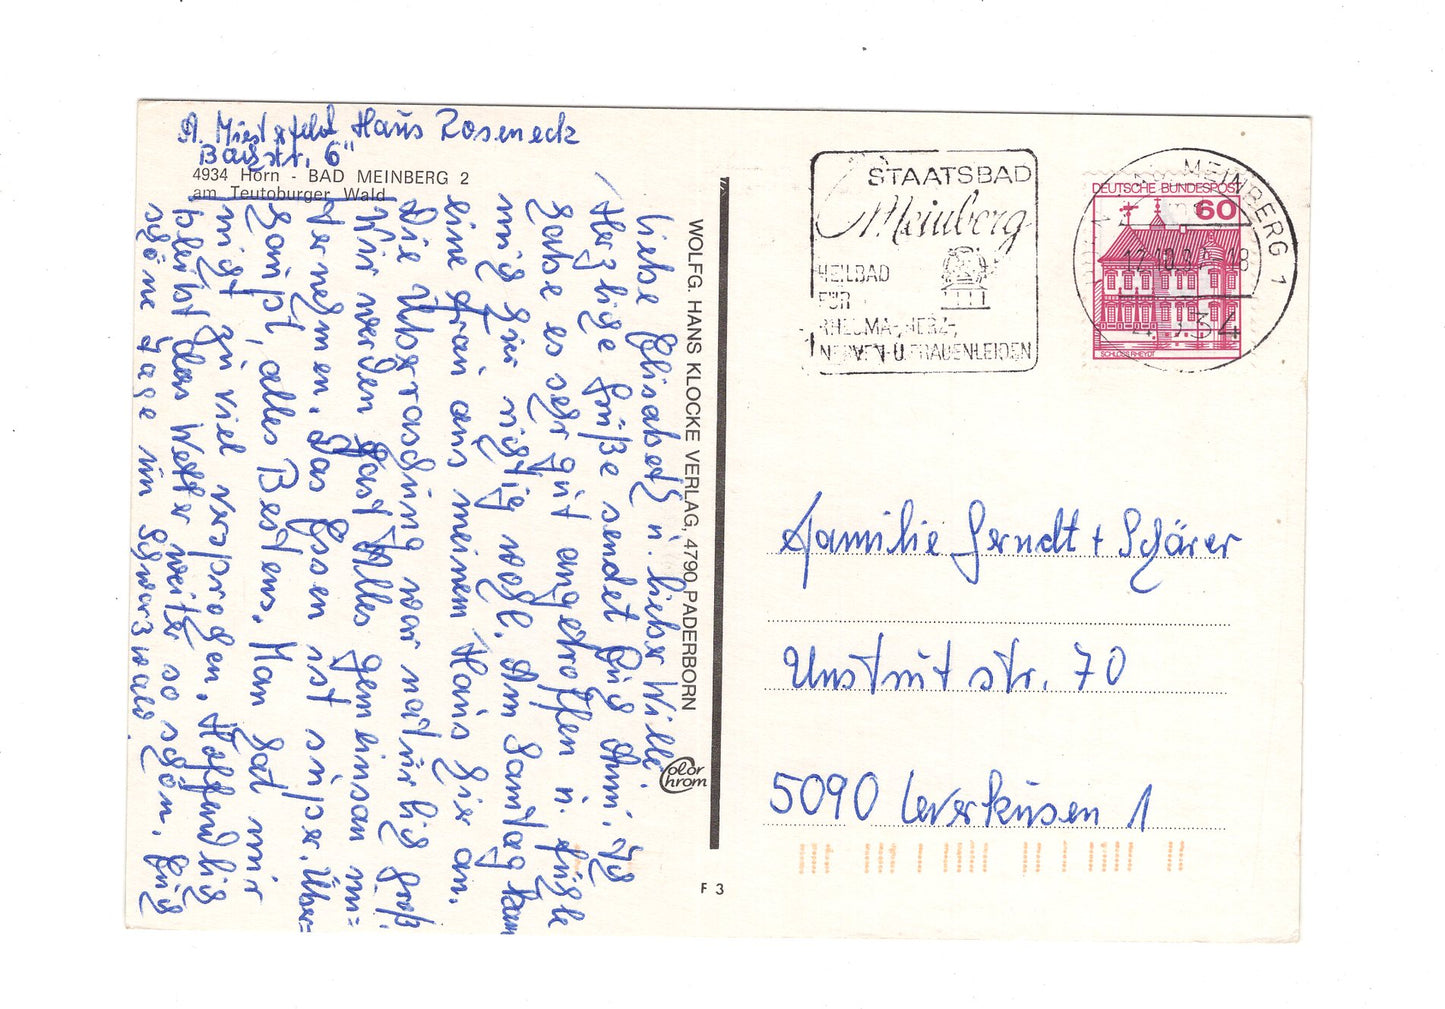 A. Haus Roseneck
4934 Horn - BAD MEINBERG 2
am Teutoburger Wald
Liebe Elisabeth u. lieber Willi
Herzliche Grüße sendet Euch Anni. Ich
habe es sehr gut angetroffen u. fühle
mich hier richtig wohl. Am Samstag kam
eine Frau aus meinem Haus hier an.
Die Überraschung war natürlich groß.
Wir werden fast Alles gemeinsam un=
ternehmen. Das Essen ist super. Über=
haupt, alles Bestens. Man hat mir
nicht zu viel versprochen. Hoffendlich
bleibt das Wetter weiter so schön. Euch
schöne Tage im Schwarzwald.
WOLFG. HANS KLOCKE VERLAG, 4790 PADERBORN
Color
Chrom
F 3
STAATSBAD
Meinberg
HEILBAD
FÜR
RHEUMA-, HERZ-,
NERVEN-U.FRAUENLEIDEN
MEINBERG 1
DEUTSCHE BUNDESPOST
60
SCHLOSS RHEYDT
Familie Gerndt + Schärer
Unstrutstr. 70
5090 Leverkusen 1